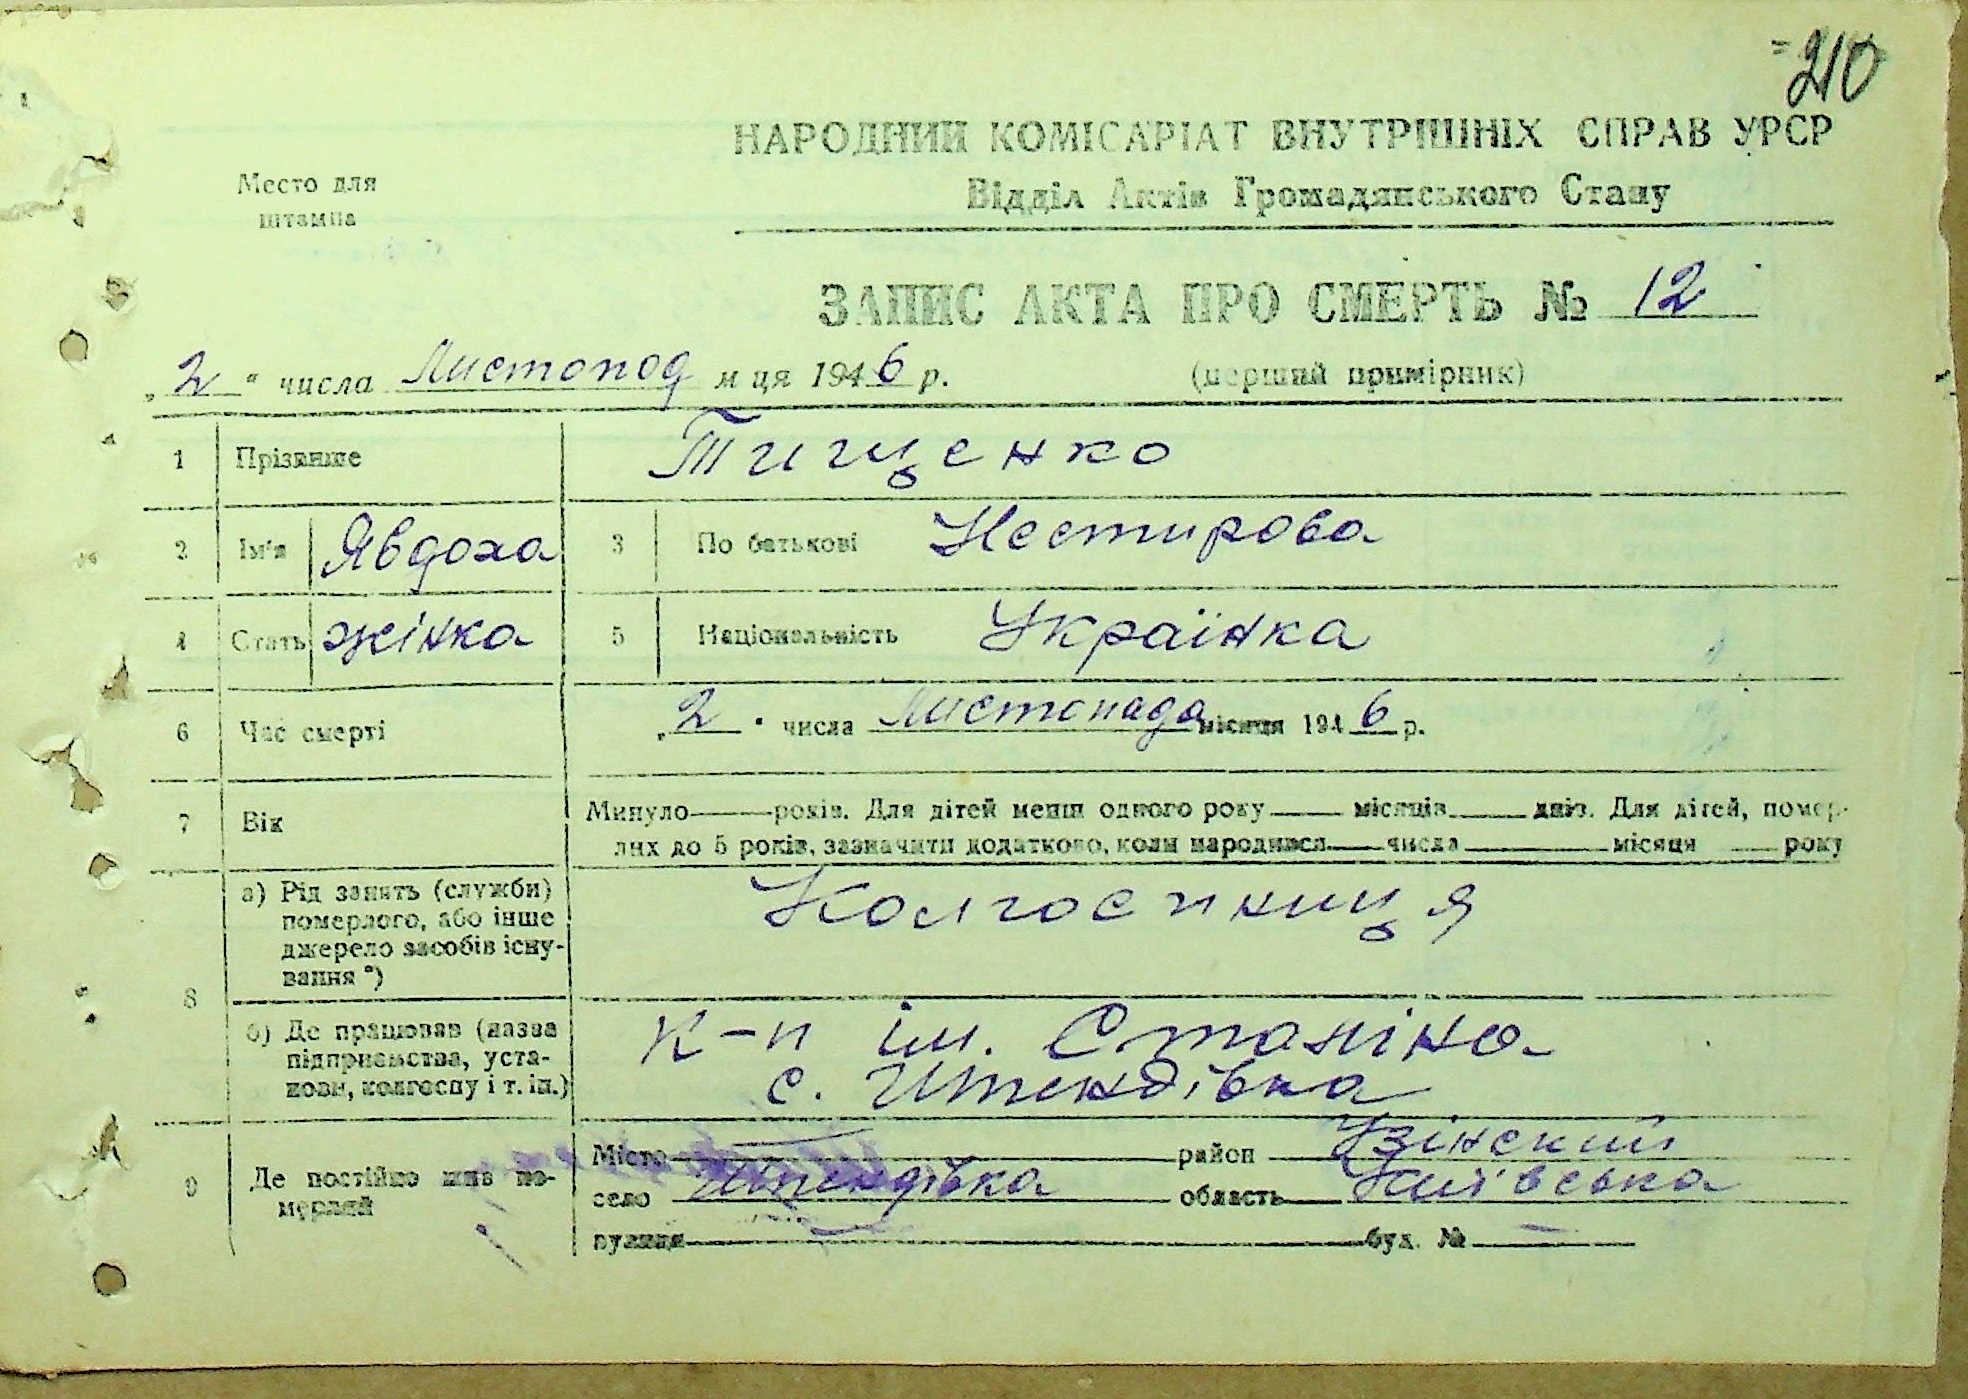 210
НАРОДНИЙ КОМІСАРІАТ ВНУТРІШНІХ СПРАВ УРСР
Відділ Актів Громадянського Стану
Место для
штампа
ЗАПИС АКТА ПРО СМЕРТЬ № 12
„2“ числа Листопад м ця 1946 р. (перший примірник)
1 Прізвище Тищенко
2 Ім'я Явдоха 3 По батькові Нестирова
4 Стать жінка 5 Національність Українка
6 Час смерті „2“ числа Листопада місяця 1946 р.
7 Вік Минуло — років. Для дітей менш одного року — місяців — днів. Для дітей, помер-
лих до 5 років, зазначити додатково, коли народився — числа — місяця — року
8 а) Рід занять (служби)
померлого, або інше
джерело засобів існу-
вання *)
Колгоспниця
б) Де працював (назва
підприємства, уста-
нови, колгоспу і т. ін.)
К-п ім. Сталіна
с. Шпендівка
9 Де постійно жив по-
мерлий
Місто — район Узінский
село Шпендівка область Київська
вулиця — буд. № —